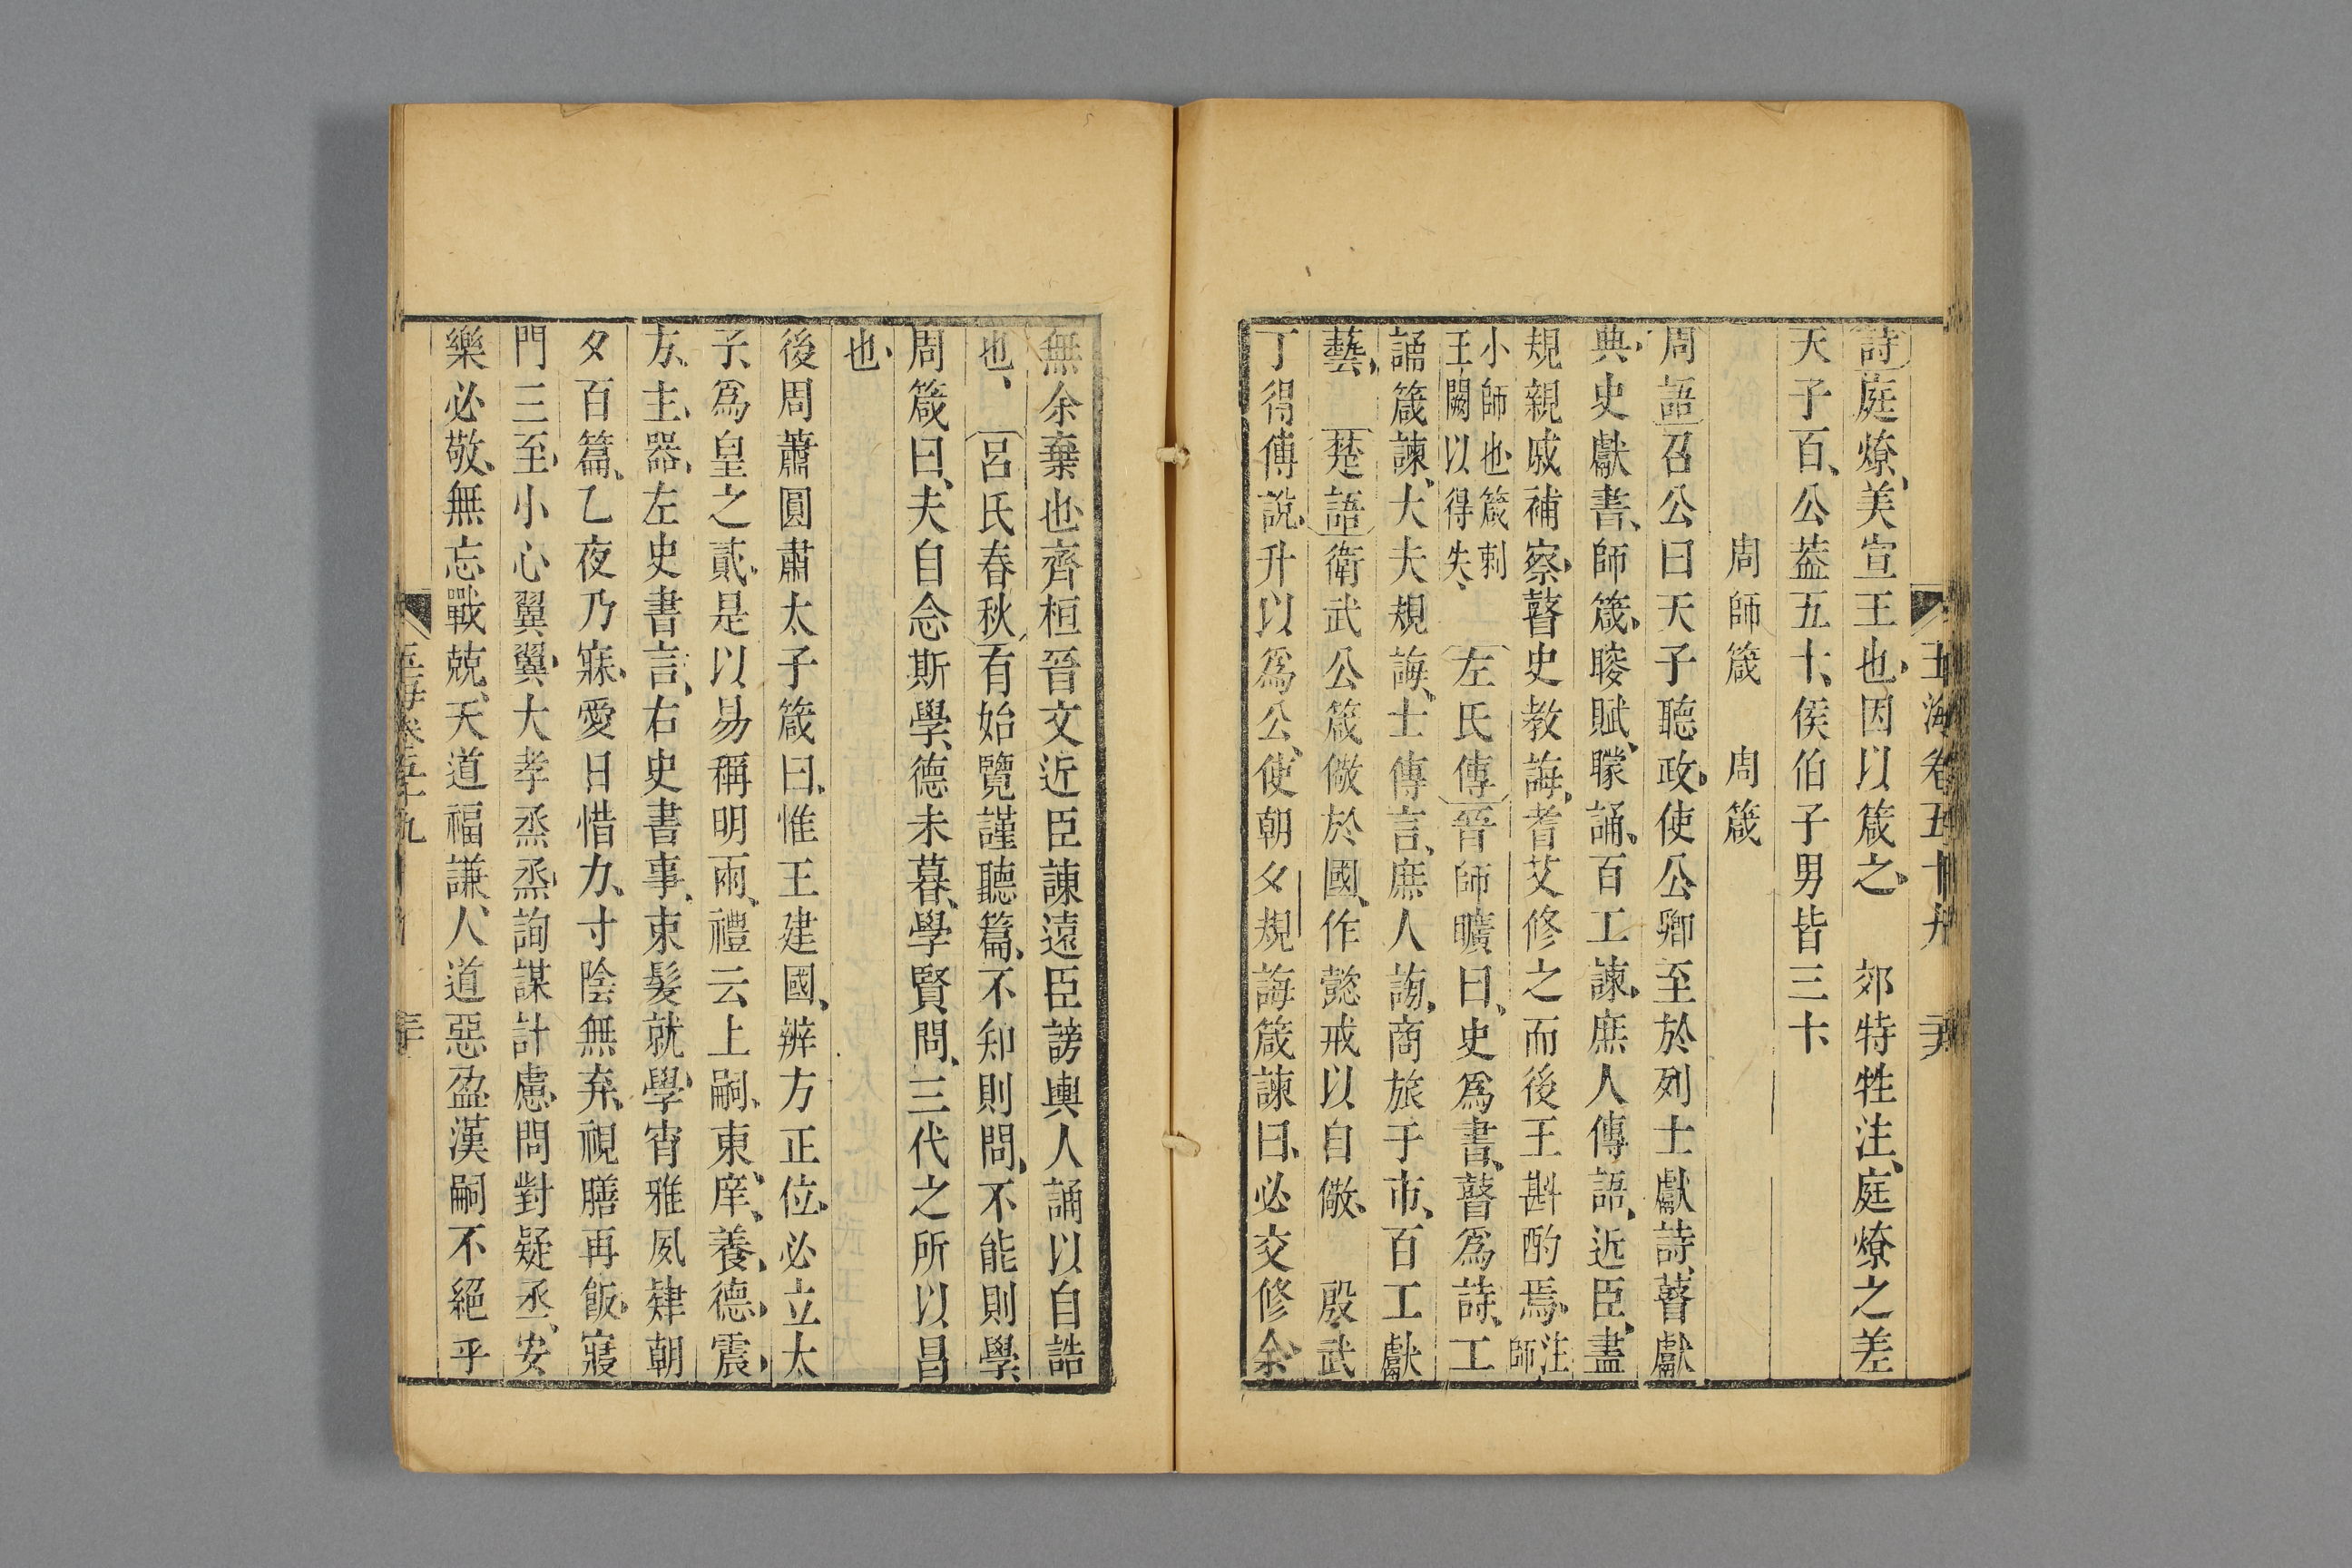 玉海卷五十九
詩庭燎、美宣王也、因以箴之、　郊特牲注、庭燎之差
天子百、公葢五十、侯伯子男皆三十
周師箴　周箴
周語召公曰天子聽政、使公卿至於列士獻詩、瞽獻
典、史獻書、師箴、瞍賦、矇誦、百工諫、庶人傳語、近臣、盡
規親戚補察、瞽史教誨、耆艾修之而後王斟酌焉、注師
小師也箴刺
王闕以得失、
左氏傳晉師曠曰、史爲書、瞽爲詩、工
誦箴諫、大夫規誨、士傳言、庶人謗、商旅于市、百工獻
藝、　楚語衛武公箴儆於國、作懿戒以自儆、　殷武
丁得傅說、升以爲公、使朝夕規誨箴諫曰、必交修余、
無余棄也、齊桓晉文近臣諫遠臣謗輿人誦以自誥
也、　呂氏春秋有始覽謹聽篇、不知則問、不能則學、
周箴曰、夫自念斯學、德未暮、學賢問、三代之所以昌
也、
後周蕭圓肅太子箴曰、惟王建國、辨方正位、必立太
子、爲皇之貳、是以易稱明兩、禮云上嗣、東序、養德、震
方、主器、左史書言、右史書事、束髮就學、宵雅夙肄朝
夕百篇、乙夜乃寐、愛日惜力、寸陰無弃、視膳再飯、寢
門三至、小心翼翼、大孝烝烝、詢謀計慮、問對疑丞、安
樂必敬、無忘戰兢、天道福謙、人道惡盈漢嗣不絕乎
玉海卷五十九